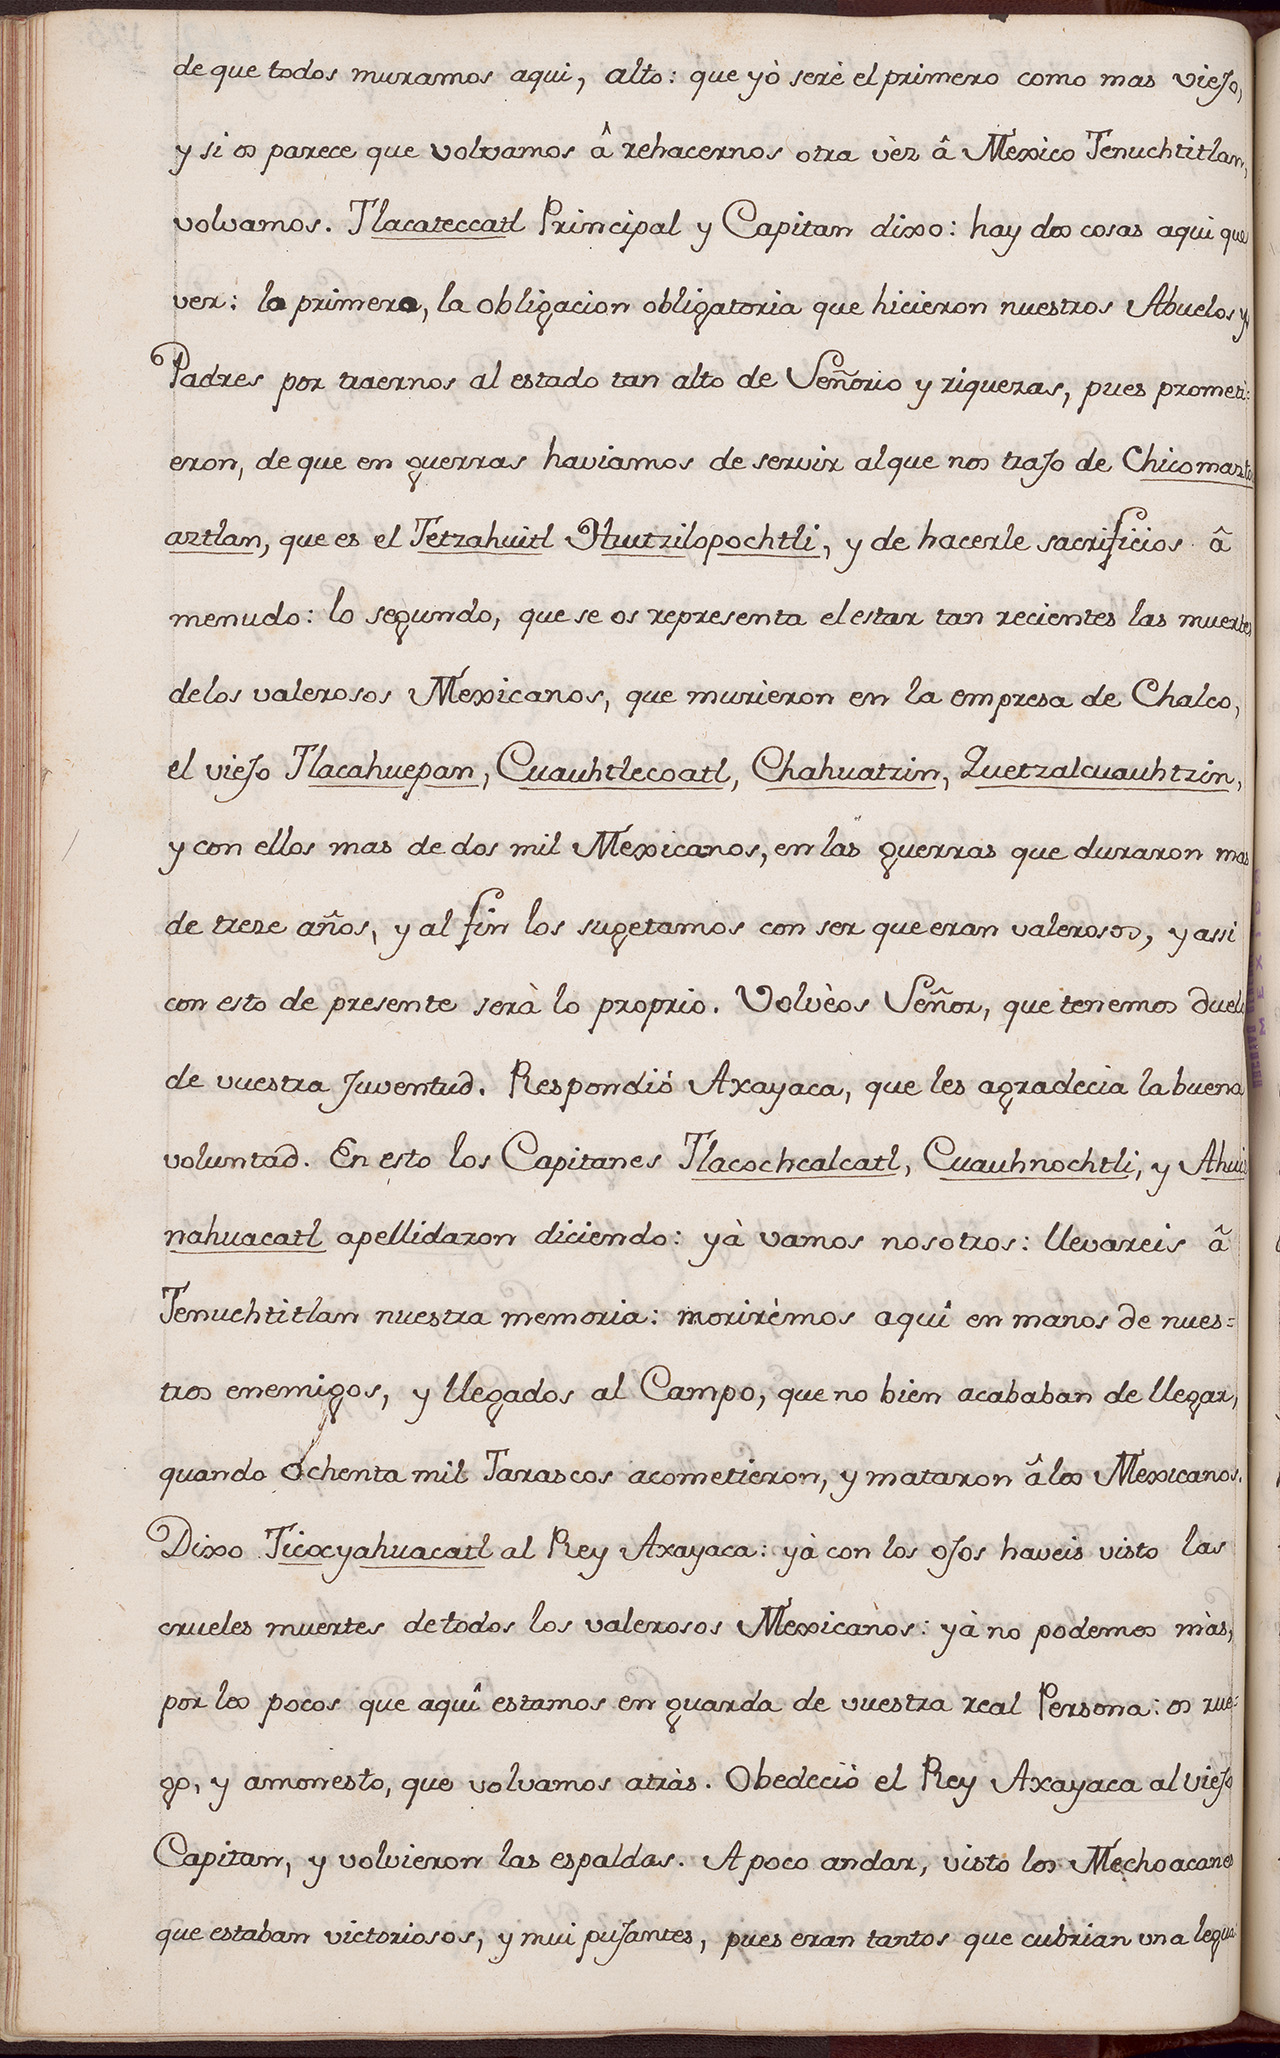 de que todos muramos aqui, alto: que yò serè el primero como mas viejo,
y si os parece que volvamos â rehacernos otra vèz â Mexico Tenuchtitlan,
volvamos. Tlacateccatl Principal y Capitan dixo: hay dos cosas aqui que
ver: lo primero, la obligacion obligatoria que hicieron nuestros Abuelos y
Padres por traernos al estado tan alto de Señorio y riquezas, pues prometi=
eron, de que en guerras haviamos de servir al que nos trajo de Chicomazto
aztlan, que es el Tetzahuitl Huitzilopochtli, y de hacerle sacrificios â
menudo: lo segundo, que se os representa el estar tan recientes las muertes
de los valerosos Mexicanos, que murieron en la empresa de Chalco,
el viejo Tlacahuepan, Cuauhtlecoatl, Chahuatzin, Quetzalcuauhtzin,
y con ellos mas de dos mil Mexicanos, en las guerras que duraron mas
de treze años, y al fin los sugetamos con ser que eran valerosos, y assi
con esto de presente serà lo proprio. Volvèos Señor, que tenemos duelo
de vuestra Juventud. Respondió Axayaca, que les agradecia la buena
voluntad. En esto los Capitanes Tlacochcalcatl, Cuauhnochtli, y Ahuiz
nahuacatl apellidaron diciendo: yà vamos nosotros: llevareis â
Tenuchtitlan nuestra memoria: morirèmos aquî en manos de nues=
tros enemigos, y llegados al Campo, que no bien acababan de llegar,
quando ochenta mil Tarascos acometieron, y mataron â los Mexicanos.
Dixo Ticocyahuacatl al Rey Axayaca: yà con los ojos haveis visto las
crueles muertes de todos los valerosos Mexicanos: yà no podemos màs,
por los pocos que aquî estamos en guarda de vuestra real Persona: os rue=
go, y amonesto, que volvamos atràs. Obedeciò el Rey Axayaca al viejo
Capitan, y volvieron las espaldas. A poco andar, visto los Mechoacanes
que estaban victoriosos, y mui pujantes, pues eran tantos que cubrian una legua